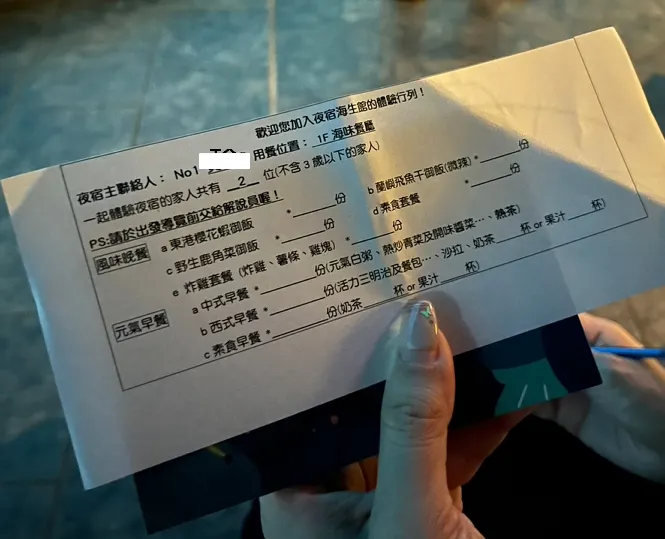 歡迎您加入夜宿海生館的體驗行列！
夜宿主聯絡人： No1 用餐位置： 1F 海味餐廳
一起體驗夜宿的家人共有 2 位(不含 3 歲以下的家人)
PS:請於出發導覽前交給解說員喔！
風味晚餐 a 東港櫻花蝦御飯 *______份 b 蘭嶼飛魚干御飯(微辣) *______份
c 野生鹿角菜御飯 *______份 d 素食套餐 *______份
e 炸雞套餐 (炸雞、薯條、雞塊) *______份
元氣早餐 a 中式早餐 *______份(元氣白粥、熱炒青菜及開味醬菜…、熱茶)
b 西式早餐 *______份(活力三明治及餐包…、沙拉、奶茶____杯 or 果汁____杯)
c 素食早餐 *______份(奶茶____杯 or 果汁____杯)